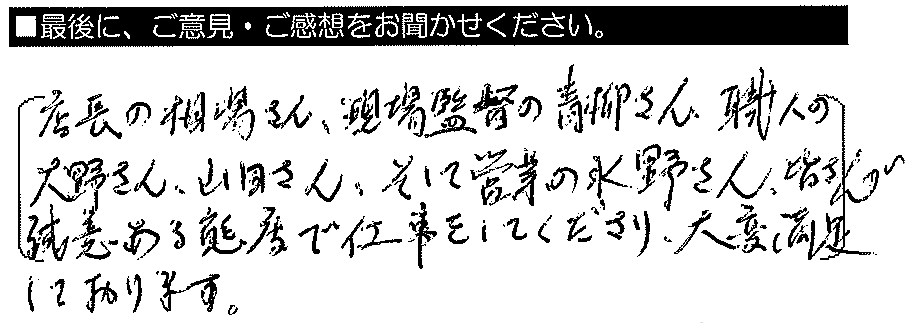 ■最後に、ご意見・ご感想をお聞かせください。
店長の相場さん、現場監督の青柳さん、職人の
大野さん、山田さん、そして営業の水野さん、皆さんが
誠意ある態度で仕事をしてくださり、大変満足
しております。